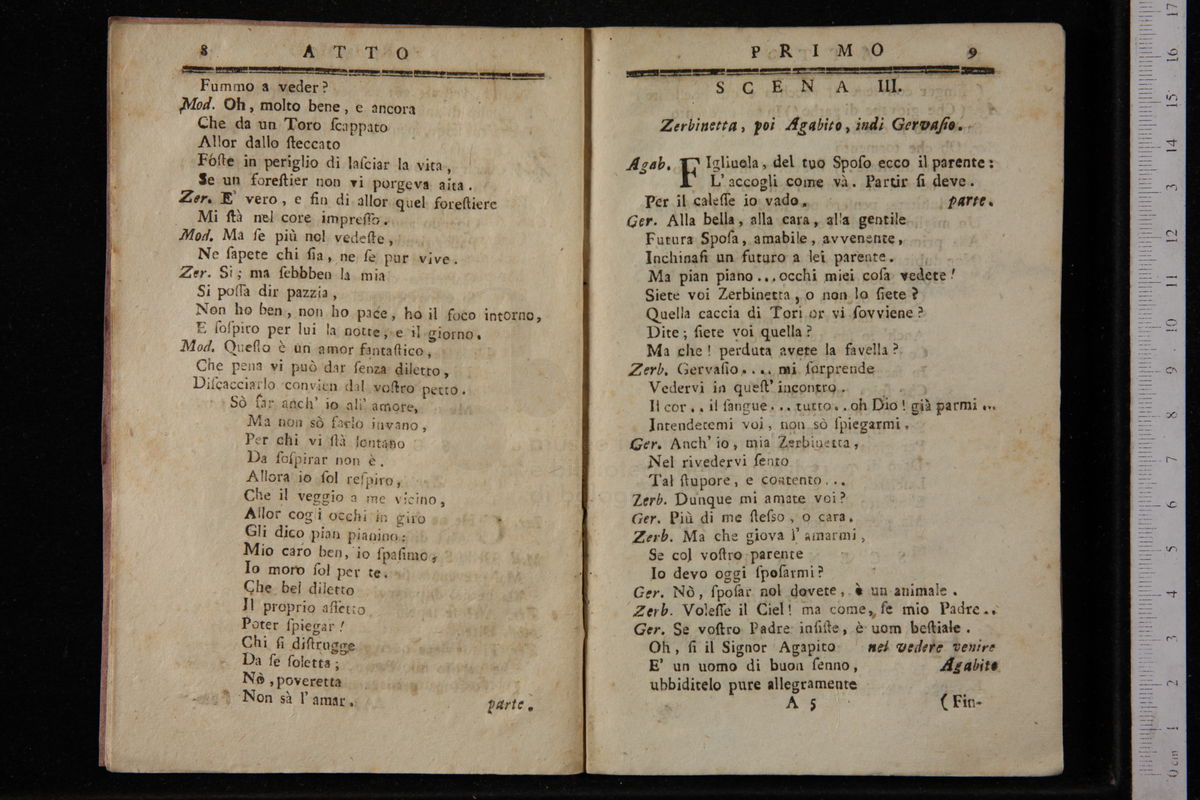 8 ATTO
Fummo a veder?
Mod. Oh, molto bene, e ancora
Che da un Toro ſcappato
Allor dallo ſteccato
Foſte in periglio di laſciar la vita,
Se un foreſtier non vi porgeva aita.
Zer. E' vero, e fin di allor quel foreſtiere
Mi ſtà nel core impreſſo.
Mod. Ma ſe più nol vedeſte,
Ne ſapete chi ſia, ne ſe pur vive.
Zer. Si; ma ſebbben la mia
Si poſſa dir pazzia,
Non ho ben, non ho pace, ho il foco intorno,
E ſoſpiro per lui la notte, e il giorno.
Mod. Queſto è un amor fantaſtico,
Che pena vi può dar ſenza diletto,
Diſcacciarlo convien dal voſtro petto.
Sò far anch' io all' amore,
Ma non sò farlo invano,
Per chi vi ſtà lontano
Da ſoſpirar non è.
Allora io ſol reſpiro,
Che il veggio a me vicino,
Allor cogli occhi in giro
Gli dico pian pianino:
Mio caro ben, io ſpaſimo,
Io moro ſol per te.
Che bel diletto
Il proprio affetto
Poter ſpiegar!
Chi ſi diſtrugge
Da ſe ſoletta;
Nò, poveretta
Non sà l' amar. parte.
PRIMO 9
SCENA III.
Zerbinetta, poi Agabito, indi Gervaſio.
Agab. FIgliuola, del tuo Spoſo ecco il parente:
L' accogli come và. Partir ſi deve.
Per il caleſſe io vado. parte.
Ger. Alla bella, alla cara, alla gentile
Futura Spoſa, amabile, avvenente,
Inchinaſi un futuro a lei parente.
Ma pian piano... occhi miei coſa vedete!
Siete voi Zerbinetta, o non lo ſiete?
Quella caccia di Tori or vi ſovviene?
Dite; ſiete voi quella?
Ma che! perduta avete la favella?
Zerb. Gervaſio.... mi ſorprende
Vedervi in queſt' incontro.
Il cor.. il ſangue... tutto.. oh Dio! già parmi...
Intendetemi voi, non sò ſpiegarmi.
Ger. Anch' io, mia Zerbinetta,
Nel rivedervi ſento
Tal ſtupore, e contento...
Zerb. Dunque mi amate voi?
Ger. Più di me ſteſso, o cara.
Zerb. Ma che giova l' amarmi,
Se col voſtro parente
Io devo oggi ſpoſarmi?
Ger. Nò, ſpoſar nol dovete, è un animale.
Zerb. Voleſſe il Ciel! ma come, ſe mio Padre..
Ger. Se voſtro Padre inſiſte, è uom beſtiale.
Oh, ſi il Signor Agapito nel vedere venire
E' un uomo di buon ſenno, Agabito
ubbiditelo pure allegramente
A 5 (Fin-
17
16
15
14
13
12
11
10
9
8
7
6
5
4
3
2
1
0 cm